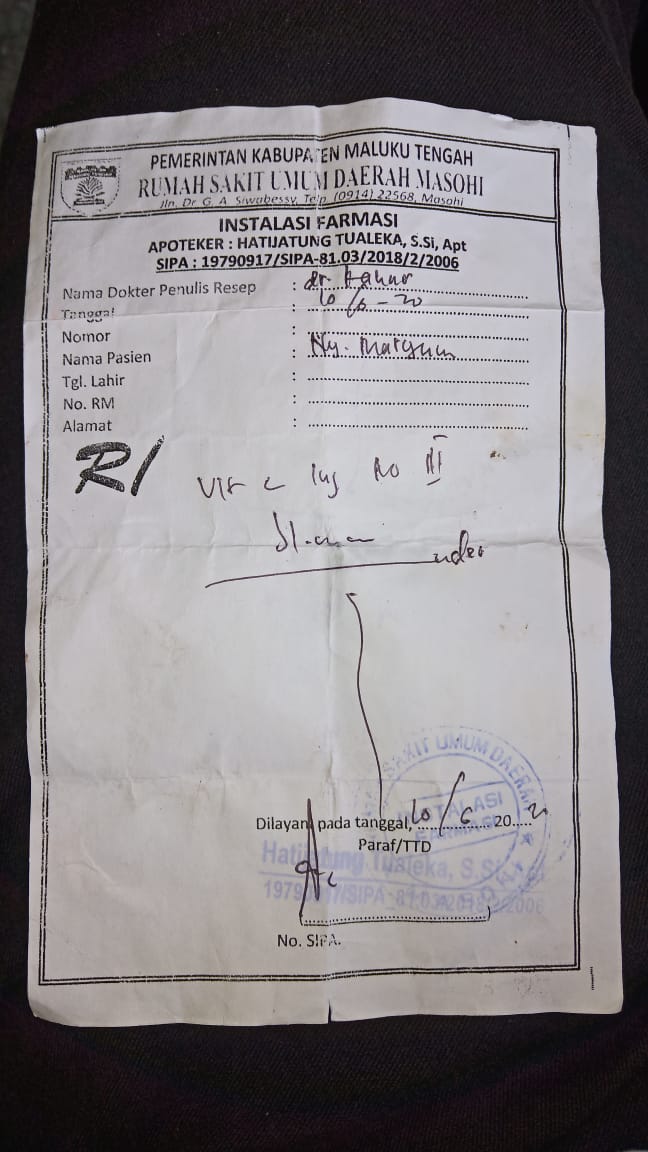 PEMERINTAN KABUPATEN MALUKU TENGAH
RUMAH SAKIT UMUM DAERAH MASOHI
Jln. Dr. G. A. Siwabessy, Telp. (0914) 22568, Masohi
INSTALASI FARMASI
APOTEKER : HATIJATUNG TUALEKA, S.Si, Apt
SIPA : 19790917/SIPA-81.03/2018/2/2006
Nama Dokter Penulis Resep : dr.
Tanggal : 10/6-20
Nomor :
Nama Pasien : Ny.
Tgl. Lahir :
No. RM :
Alamat :
R/
Vit c 1mg No III
SAKIT UMUM DAERAH
INSTALASI
FARMASI
Dilayani pada tanggal, 10/6 20 20
Paraf/TTD
Hatijatung Tualeka, S.Si, Apt
19790917/SIPA-81.03/2018/2/2006
No. SIPA.